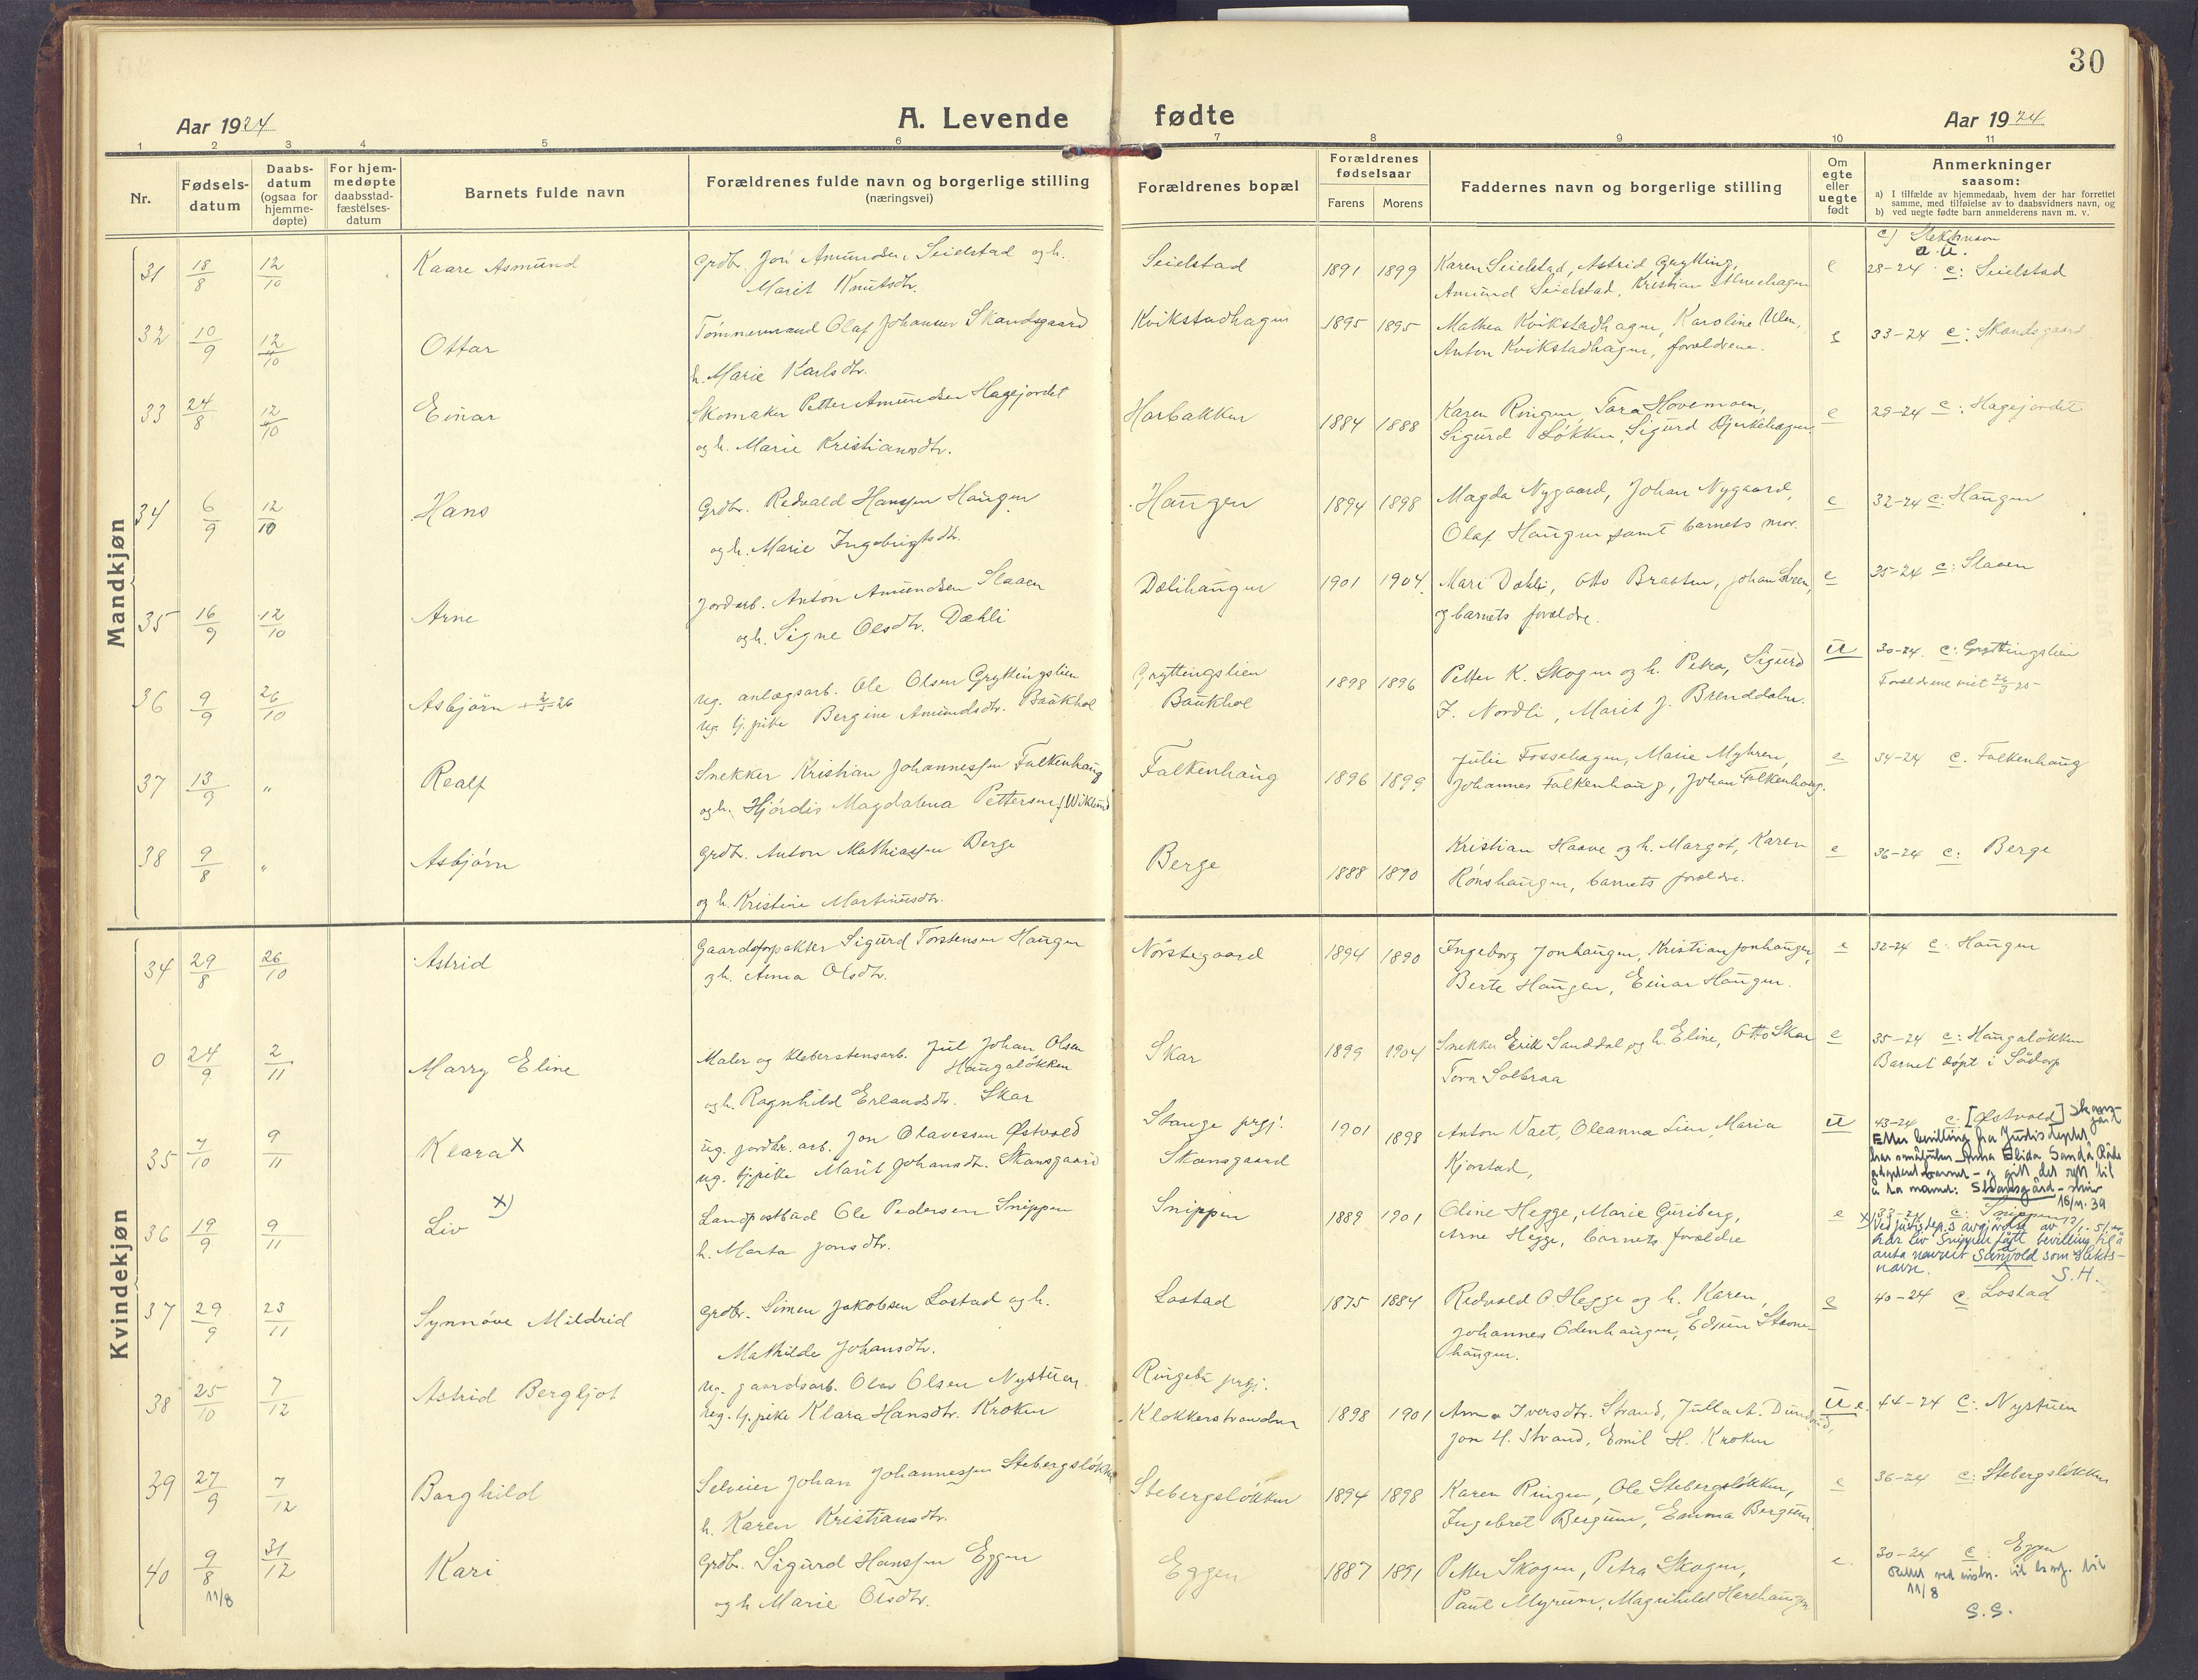 30
Aar 1924
A. Levende fødte
Aar 1924
1 2 3 4 5 6 7 8 9 10 11
Nr.
Fødsels-
datum
Daabs-
datum
(ogsaa for
hjemme-
døpte)
For hjem-
medøpte
daabsstad-
fæstelses-
datum
Barnets fulde navn
Forældrenes fulde navn og borgerlige stilling
(næringsvei)
Forældrenes bopæl
Forældrenes
fødselsaar
Farens Morens
Faddernes navn og borgerlige stilling
Om
egte
eller
uegte
født
Anmerkninger
saasom:
a) I tilfælde av hjemmedaab, hvem der har forrettet
samme, med tilføielse av to daabsvidners navn, og
b) ved uegte fødte barn anmelderens navn m. v.
Mandkjøn
31 18/8 12/10 Kaare Asmund
Grdbr. Jon Amundsen Seielstad og h.
Marit Knutsdtr.
Seielstad 1891 1899
Karen Seielstad, Astrid Grytting,
Amund Seielstad, Kristian
e
28-24 c: Seielstad
32 10/9 12/10 Ottar
Tømmermand Olaf Johansen Skandsgaard
h. Marie Karlsdtr.
Kvikstadhagen 1895 1895
Mathea Kvikstadhagen, Karoline Ulen,
Anton Kvikstadhagen, forældrene.
e
33-24 c: Skandsgaard
33 24/8 12/10 Einar
Skomaker Petter Amundsen Hagejordet
og h. Marie Kristiansdtr.
Harbakken 1884 1888
Karen Ringen, Tora Hovemoen,
Sigurd Løkken, Sigurd Bjerkehagen.
e
29-24 c: Hagejordet
34 6/9 12/10 Hans
Grdbr. Redvald Hanssen Haugen
og h. Marie Ingebrigtsdtr.
Haugen 1894 1898
Magda Nygaard, Johan Nygaard,
Olaf Haugen samt barnets mor.
e
32-24 c: Haugen
35 16/9 12/10 Arne
Jordarb. Anton Amundsen Slaaen
og h. Signe Olsdtr. Dæhli
Dælihaugen 1901 1904
Mari Dæhli, Otto Brasten, Johan
og barnets forældre.
e
35-24 c: Slaaen
36 9/9 26/10 Asbjørn
ug. anlægsarb. Ole Olsen Gryttingslien
ug. tj. pike Bergine Amundsdtr. Baukhol
Gryttingslien
Baukhol
1898 1896
Petter K. Skogen og h. Petra, Sigurd
J. Nordli, Marit J. Brenddalen.
u
30-24. c: Gryttingslien
Forældrene viet
37 13/9 " Realf
Snekker Kristian Johannessen Falkenhaug
og h. Hjørdis Magdalena Pettersen f. Wiklund
Falkenhaug 1896 1899
Julie Fossehagen, Marie Myhren,
Johannes Falkenhaug, Johan Falkenhaug.
e
34-24 c. Falkenhaug
38 9/8 " Asbjørn
Grdbr. Anton Mathiassen Berge
og h. Kristine Martinusdtr.
Berge 1888 1890
Kristian Haave og h. Margot, Karen
Rønshaugen, barnets forældre.
e
36-24 c: Berge
Kvindekjøn
34 29/8 26/10 Astrid
Gaardsforpakter Sigurd Torstensen Haugen
og h. Anna Olsdtr.
Nørstegaard 1894 1890
Ingeborg Jonhaugen, Kristian Jonhaugen,
Berte Haugen, Einar Haugen.
e
32-24 c: Haugen
0 24/9 2/11 Marry Eline
Maler og klebersteinsarb. Jul Johan Olsen
Haugaløkken
og h. Ragnhild Erlandsdtr. Skar
Skar 1899 1904
Snekker Erik Sanddal og h. Eline, Otto Skar
Tora Solbraa
e
35-24 c: Haugaløkken
Barnet døpt i Sødorp
35 7/10 9/11 Klara x
ug. jordbr. arb. Jon Olavessen Østvold
ug. tj. pike Marit Johansdtr. Skansgaard
Stange prgj.
Skansgaard
1901 1898
Anton Vaet, Oleanna Lien, Maria
Kjorstad,
u
43-24 c: [Østvold]
Etter bevilling fra Justisdeptet
har Anna Elida Sanda Råde
adoptert barnet - og gitt det rett til
å ta navnet: Skansgård
16/11. 39
36 19/9 9/11 Liv x)
Landpostbud Ole Pedersen Snippen
h. Marta Jonsdtr.
Snippen 1889 1901
Oline Hegge, Marie Guriberg,
Arne Hegge, barnets forældre
e
33-24 c: Snippen
x) Ved justisdep.s avgjørelse av
har Liv Snippen fått bevilling til å
anta navnet Sandvold som slekts-
navn. S.H.
37 29/9 23/11 Synnøve Mildrid
Grdbr. Simen Jakobsen Lostad og h.
Mathilde Johansdtr.
Lostad 1875 1884
Redvald O. Hegge og h. Karen,
Johannes Odenhaugen,
haugen.
e
40-24 c. Lostad
38 25/10 7/12 Astrid Bergljot
ug. gaardsarb. Olav Olsen Nystuen
ug. tj. pike Klara Hansdtr. Kroken
Ringebu prgj.
Klokkerstranden 1898 1901
Anna Iversdtr. Strand, Julla A.
Jon H. Strand, Emil H. Kroken
u e.
44-24 c: Nystuen
39 27/9 7/12 Borghild
Selveier Johan Johannessen Stebergsløkken
h. Karen Kristiansdtr.
Stebergsløkken 1894 1898
Karen Ringen, Ole Stebergsløkken,
Ingebret Bergum, Emma Bergum.
e
36-24 c: Stebergsløkken
40 9/8 31/12 Kari
11/8
Grdbr. Sigurd Hanssen Eggen
og h. Marie Olsdtr.
Eggen 1887 1891
Petter Skogen, Petra Skogen,
Paul Myrum, Magnhild
e.
30-24 c: Eggen
Rettet ved
11/8
S.S.